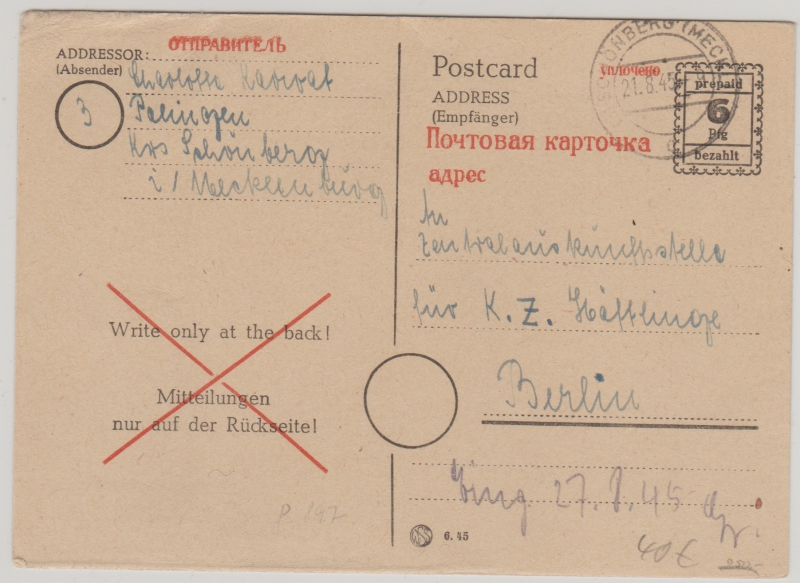 ОТПРАВИТЕЛЬ
ADDRESSOR:
(Absender)
3
Palingen
Krs Schönberg
i/ Mecklenburg
Write only at the back!
Mitteilungen
nur auf der Rückseite!
P 197
Postcard
ADDRESS
(Empfänger)
Почтовая карточка
адрес
SCHÖNBERG (MECKL)
21.8.45
уплочено
prepaid
6
Pfg
bezahlt
An
Zentralauskunftsstelle
für K. Z. Häftlinge
Berlin
Eing 27. 8. 45
6. 45